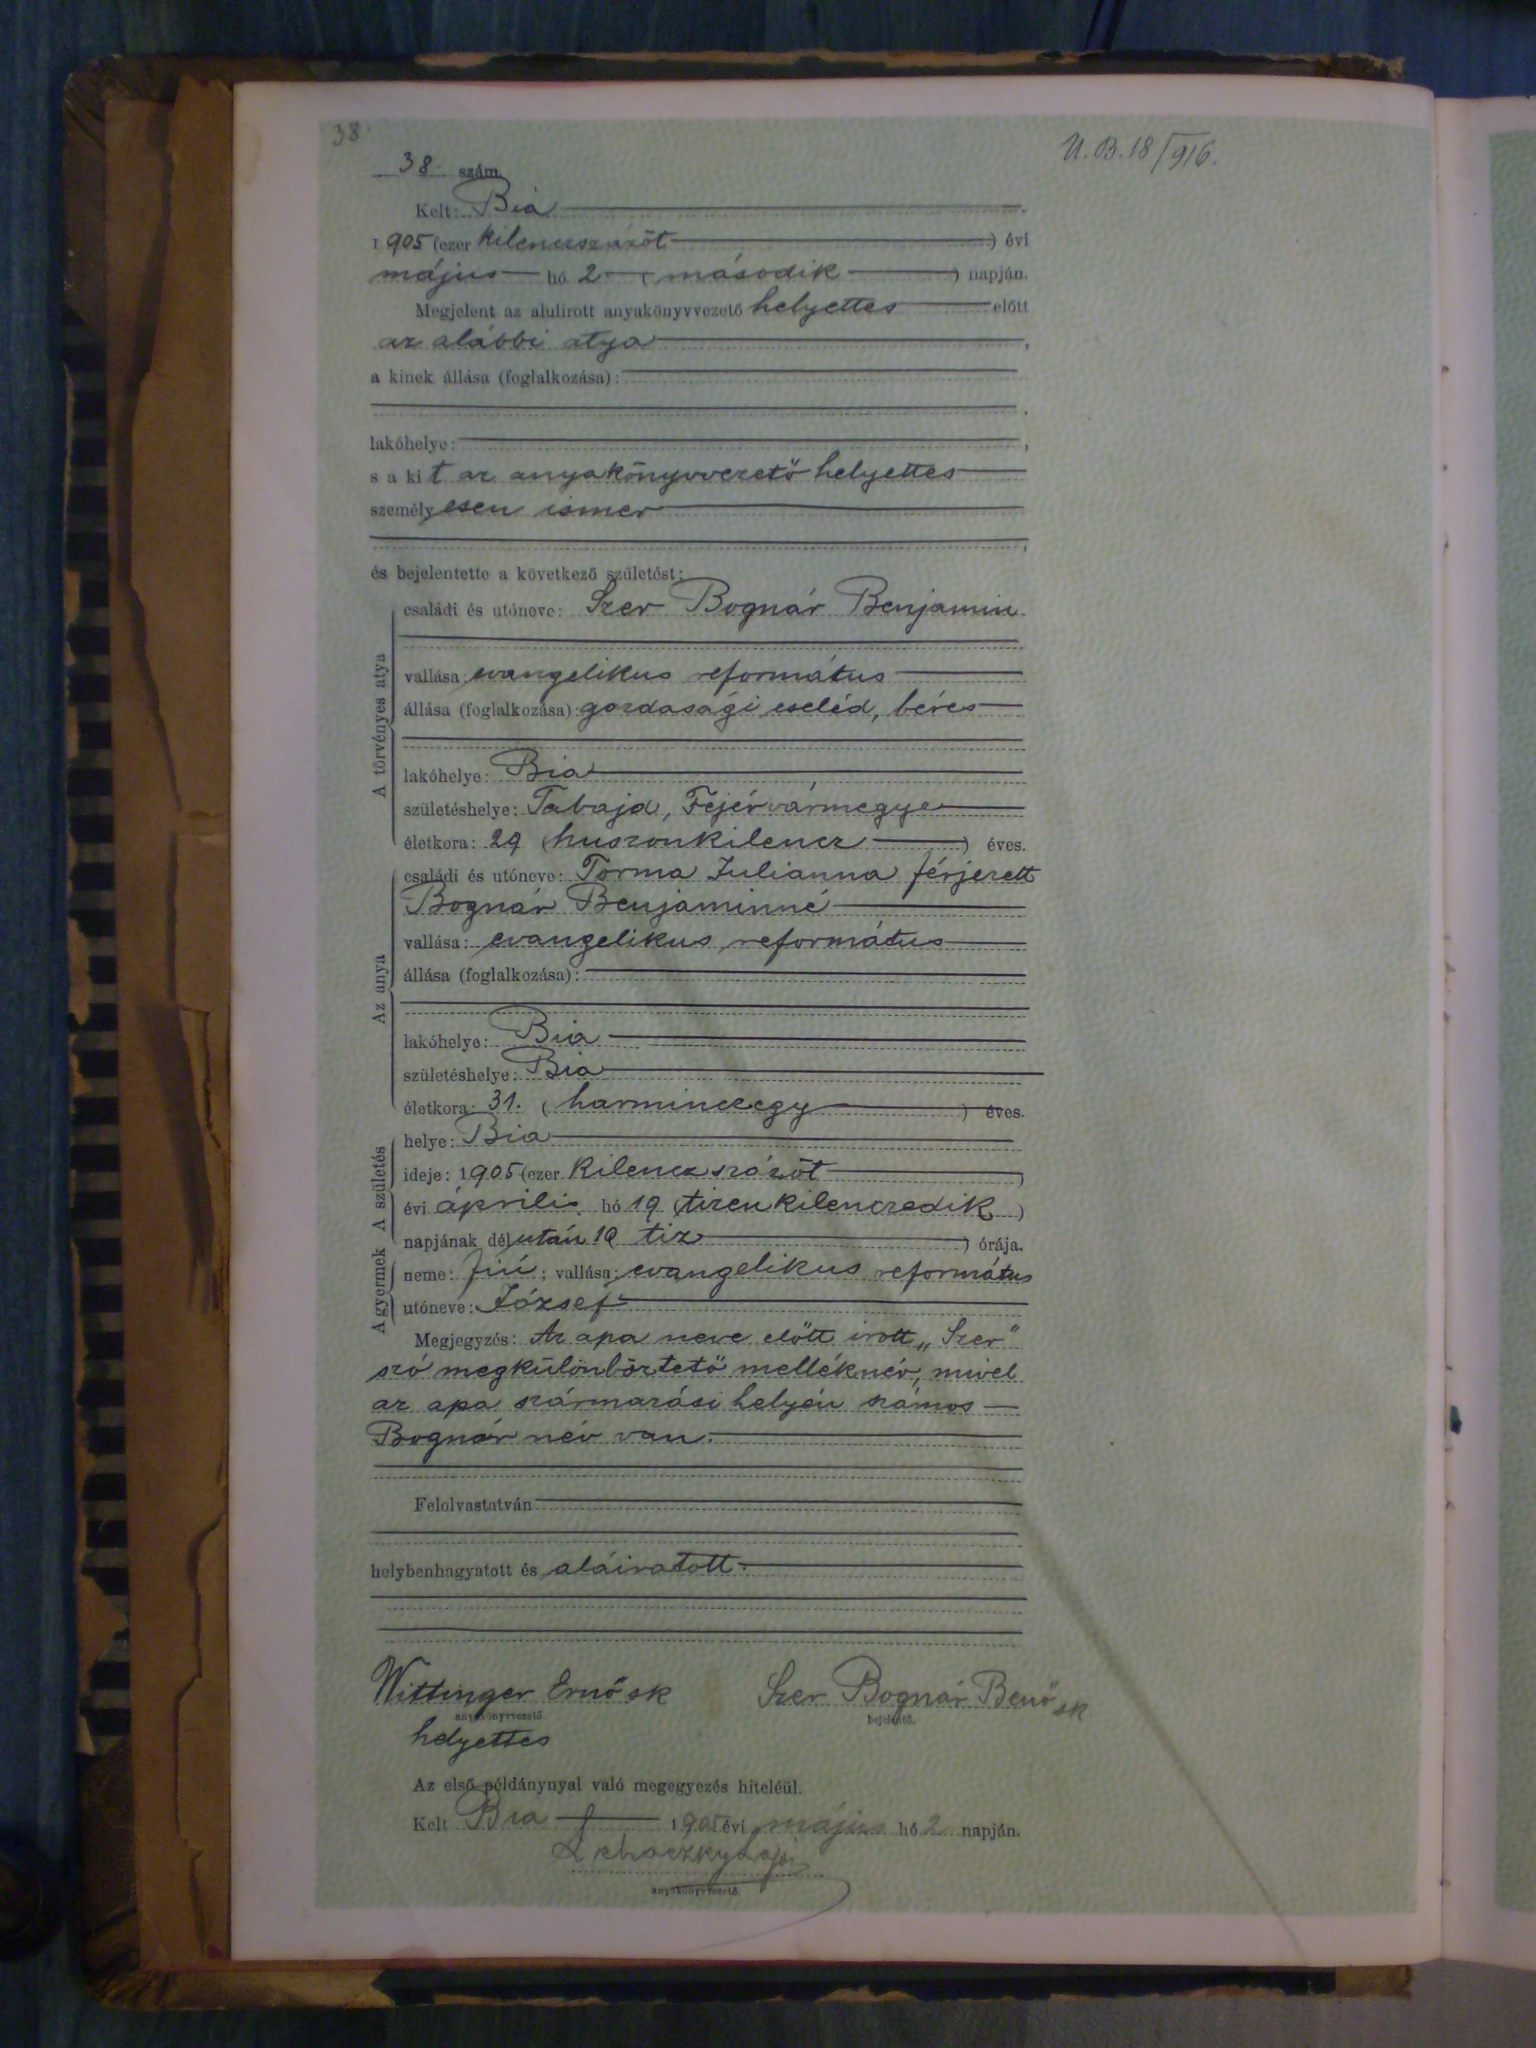 38.
U. B. 18/916.
38. szám
Kelt: Bia
1905 (ezer kilenczszázöt) évi
május hó 2 (második) napján.
Megjelent az alulirott anyakönyvvezető helyettes előtt
az alábbi atya,
a kinek állása (foglalkozása):
lakóhelye:
s a kit az anyakönyvvezető helyettes
személyesen ismer
és bejelentette a következő születést:
A törvényes atya
családi és utóneve: Szer Bognár Benjamin
vallása: evangelikus református
állása (foglalkozása): gazdasági cseléd, béres
lakóhelye: Bia
születéshelye: Tabajd, Fejérvármegye
életkora: 29 (huszonkilencz) éves.
Az anya
családi és utóneve: Torma Julianna férjezett
Bognár Benjaminné
vallása: evangelikus református
állása (foglalkozása):
lakóhelye: Bia
születéshelye: Bia
életkora: 31. (harminczegy) éves.
A születés
helye: Bia
ideje: 1905 (ezer kilenczszázöt)
évi április hó 19 (tizenkilenczedik)
napjának délután 10 tiz) órája.
A gyermek
neme: fiú; vallása: evangelikus református
utóneve: József
Megjegyzés: Az apa neve előtt irott „Szer"
szó megkülönböztető melléknév, mivel
az apa származási helyén számos
Bognár név van.
Felolvastatván
helybenhagyatott és aláiratott.
Wittinger Ernő sk Szer Bognár Benő sk
anyakönyvvezető. bejelentő.
helyettes
Az első példánynyal való megegyezés hiteléül.
Kelt Bia 1905 évi május hó 2 napján.
anyakönyvvezető.